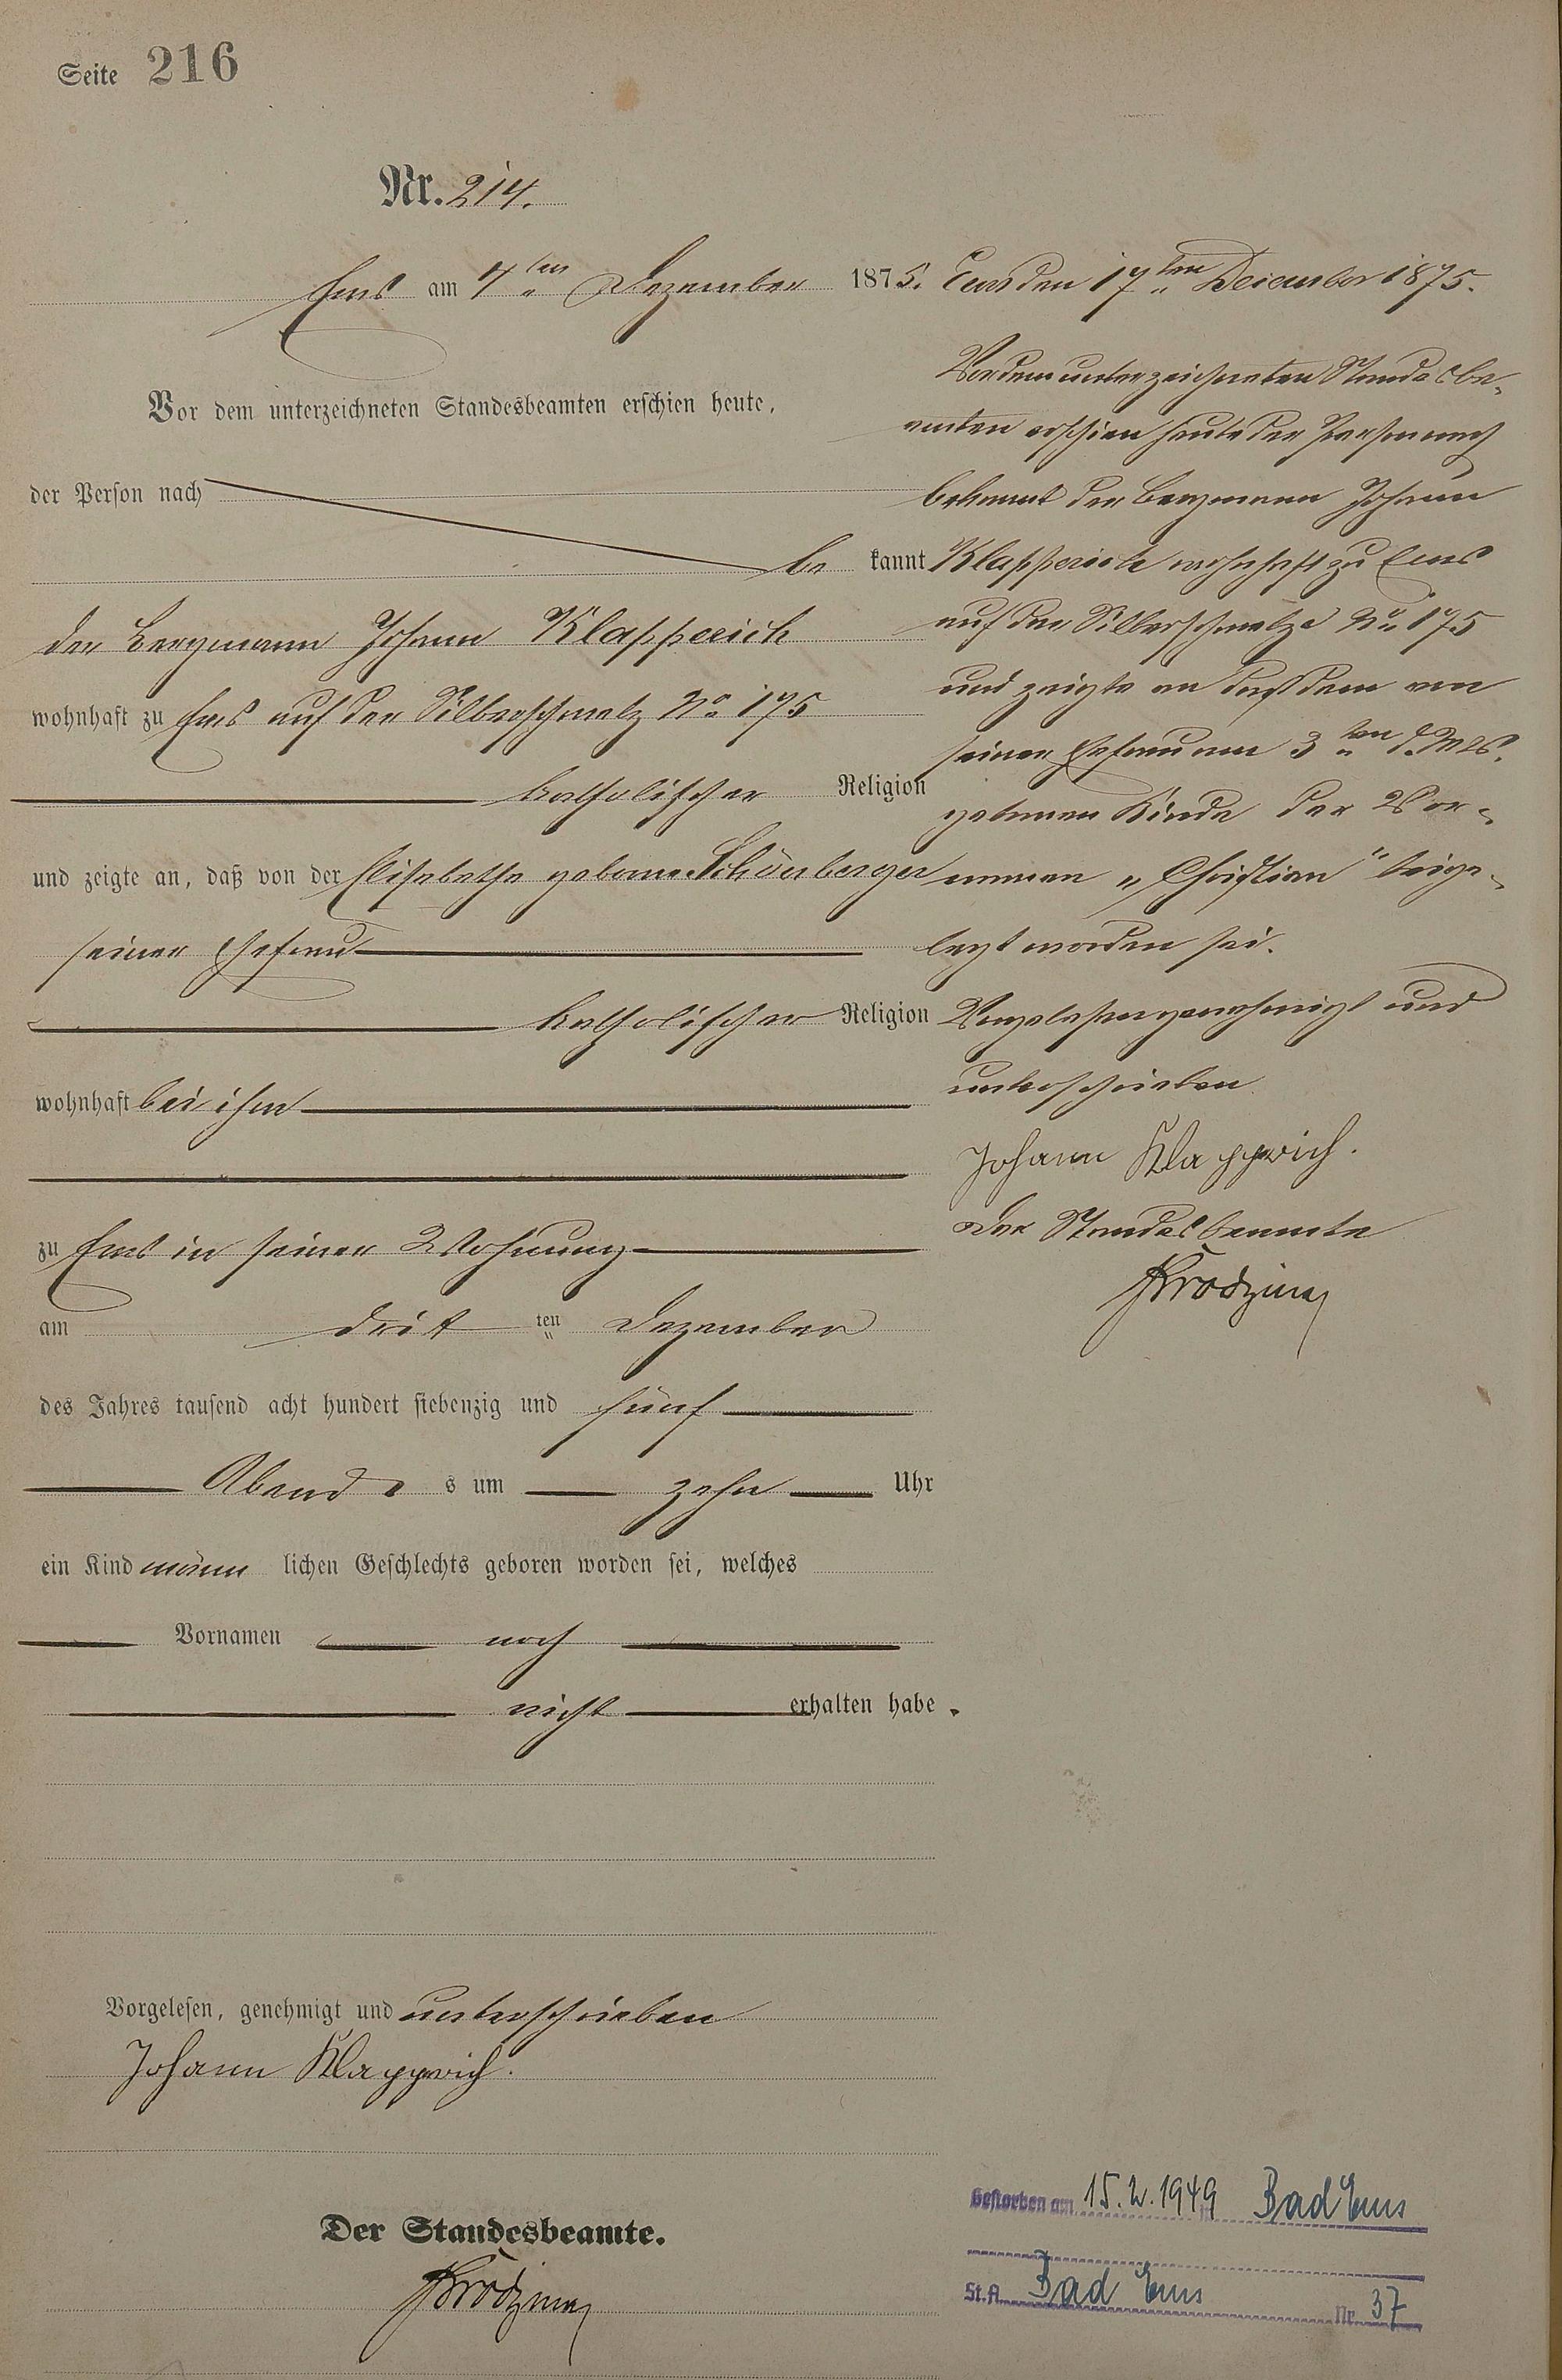 Seite 216
Nr. 214.
Ems am 4ten Dezember 1875.
Vor dem unterzeichneten Standesbeamten erschien heute,
der Person nach
be kannt
der Bergmann Johann Klapperich
wohnhaft zu Ems auf der Silberschmelz No 175
katholischer Religion
und zeigte an, daß von der Elisabetha geborne Schönberger
seiner Ehefrau
katholischer Religion
wohnhaft bei ihm
zu Ems in seiner Wohnung
am dritten Dezember
des Jahres tausend acht hundert siebenzig und fünf
Abends um zehn Uhr
ein Kind männlichen Geschlechts geboren worden sei, welches
Vornamen noch
nicht erhalten habe.
Vorgelesen, genehmigt und unterschrieben
Johann Klapperich.
Der Standesbeamte.
Ems den 17ten December 1875.
Vor dem unterzeichneten Standesbe-
amten erschien heute der Person nach
bekannt der Bergmann Johann
Klapperich wohnhaft zu Ems
auf der Silberschmelze No 175
und zeigte an daß dem von
seiner Ehefrau am 3ten d. Mts.
gebornen Kinde der Vor-
namen „Christian" beige-
legt worden sei.
Vorgelesen genehmigt und
unterschrieben
Johann Klapperich.
Der Standesbeamte
Gestorben am 15.2.1949 in Bad Ems
St.A. Bad Ems Nr. 37